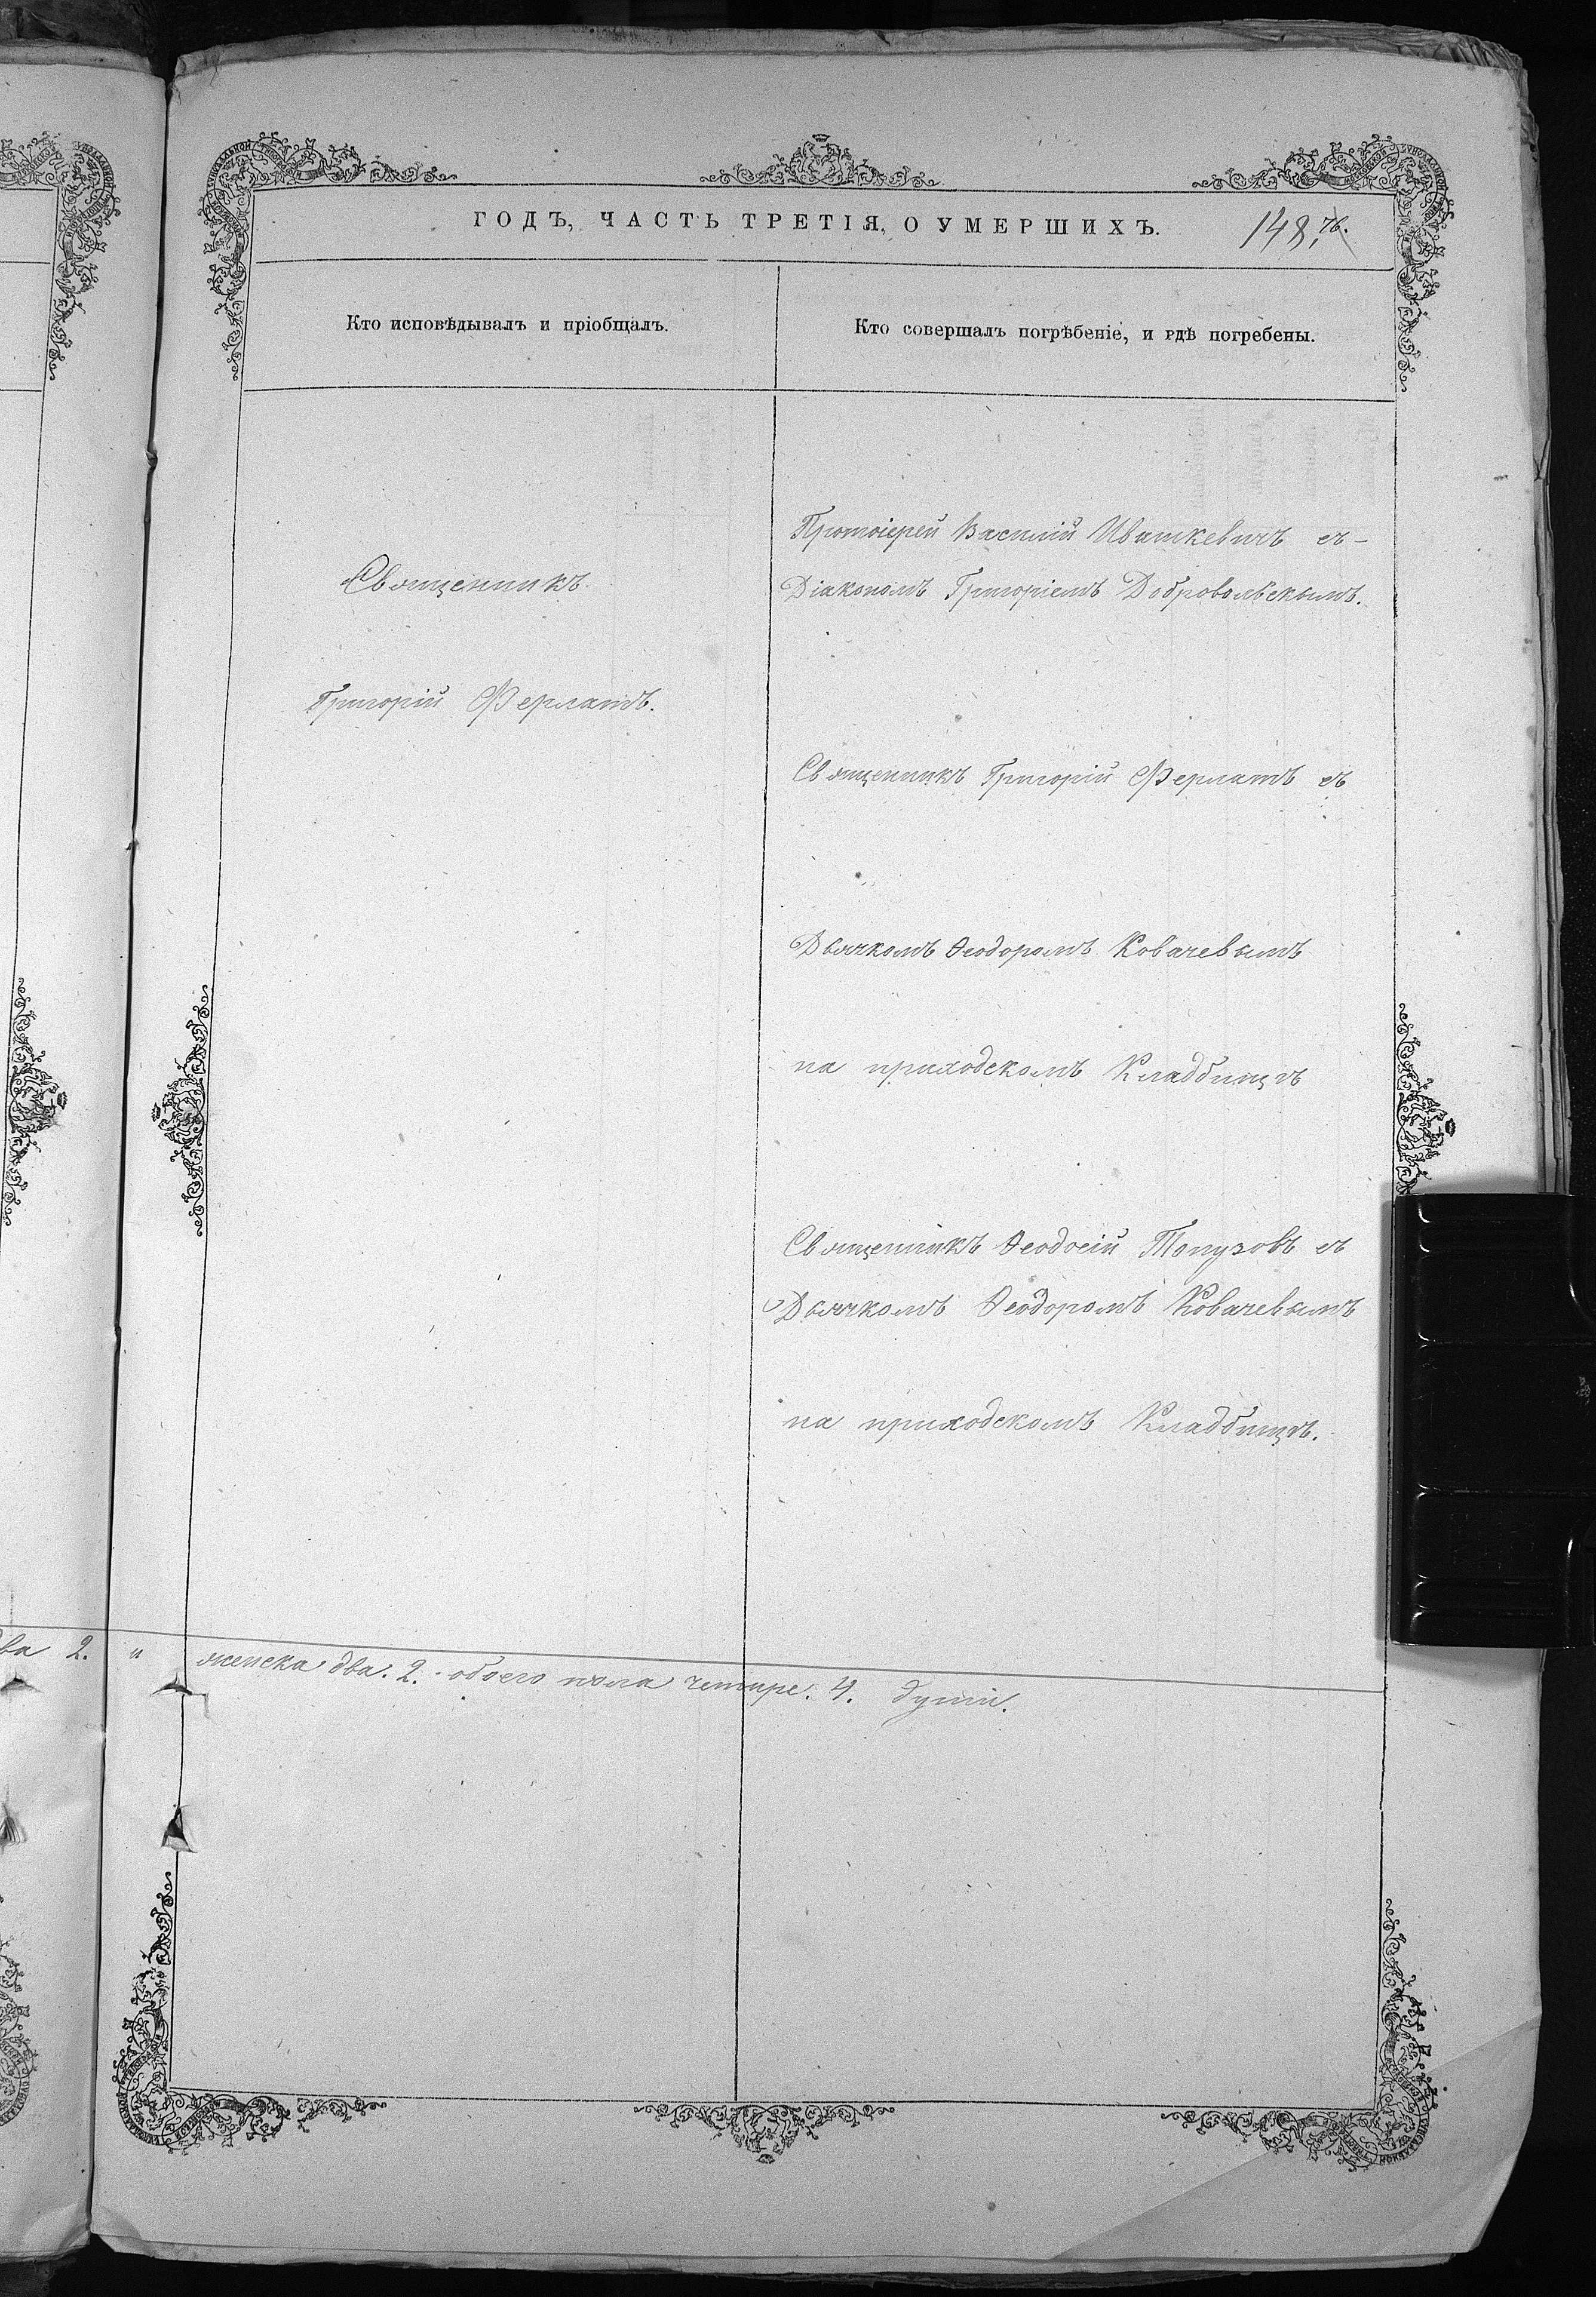 ГОДЪ, ЧАСТЬ ТРЕТІЯ, О УМЕРШИХЪ.
148, 76.
Кто исповѣдывалъ и пріобщалъ.
Кто совершалъ погрѣбеніе, и гдѣ погребены.
Священникъ
Григорій Ферлатъ.
Протоіерей Василій Ивашкевичъ съ
Діакономъ Григоріемъ Добровольскымъ.
Священникъ Григорій Ферлатъ съ
Дьячкомъ Ѳеодоромъ Ковачевымъ
на приходскомъ Кладбищѣ
Священникъ Ѳеодосій Топузовъ съ
Дьячкомъ Ѳеодоромъ Ковачевымъ
на приходскомъ Кладбищѣ.
два 2. и женска два. 2. обоего пола четире. 4. души.